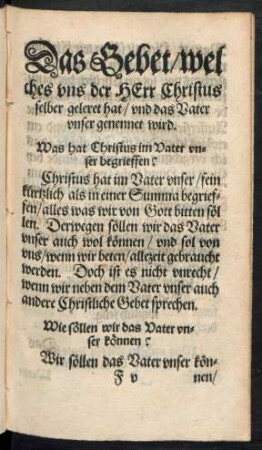 Das Gebet/wel
ches vns der HErr Christus
selber geleret hat/vnd das Vater
vnser genennet wird.
Was hat Christus im Vater vn-
ser begrieffen?
Christus hat im Vater vnser/fein
kürtzlich als in einer Summa begrief-
fen/alles was wir von Gott bitten söl
len. Derwegen söllen wir das Vater
vnser auch wol können/vnd sol von
vns/wenn wir beten/allezeit gebraucht
werden. Doch ist es nicht vnrecht/
wenn wir neben dem Vater vnser auch
andere Christliche Gebet sprechen.
Wie söllen wir das Vater vn-
ser können?
Wir söllen das Vater vnser kön-
F v nen/